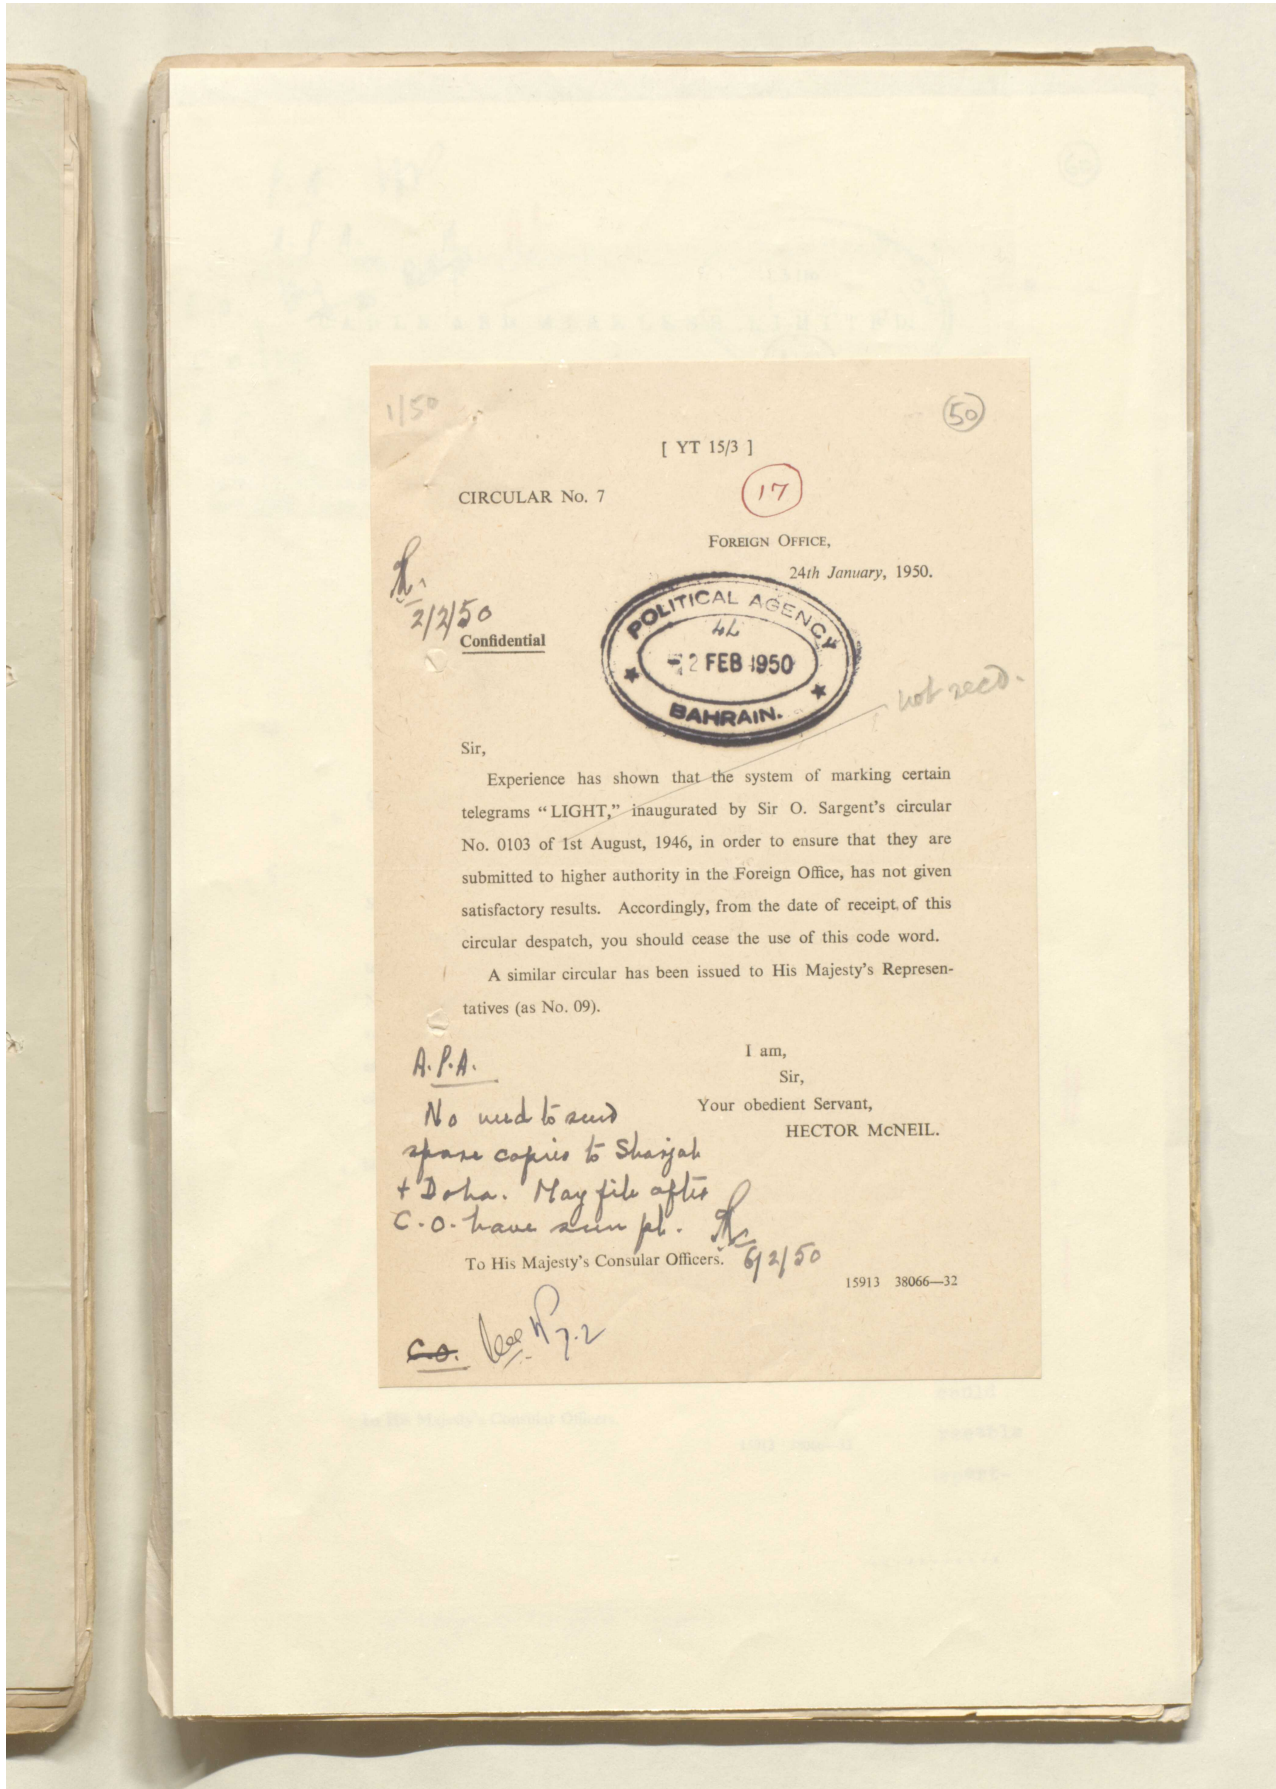 1/50
50
[ YT 15/3 ]
CIRCULAR No. 7
17
FOREIGN OFFICE,
24th January, 1950.
2/2/50
Confidential
POLITICAL AGENCY
44
-2 FEB 1950
BAHRAIN.
not recd.
Sir,
Experience has shown that the system of marking certain
telegrams “LIGHT,” inaugurated by Sir O. Sargent's circular
No. 0103 of 1st August, 1946, in order to ensure that they are
submitted to higher authority in the Foreign Office, has not given
satisfactory results. Accordingly, from the date of receipt of this
circular despatch, you should cease the use of this code word.
A similar circular has been issued to His Majesty's Represen-
tatives (as No. 09).
I am,
Sir,
Your obedient Servant,
HECTOR McNEIL.
A.P.A.
No need to send
spare copies to Sharjah
+ Doha. May file after
C.O. have seen pl.
6/2/50
To His Majesty's Consular Officers.
15913 38066—32
C.O.
7.2